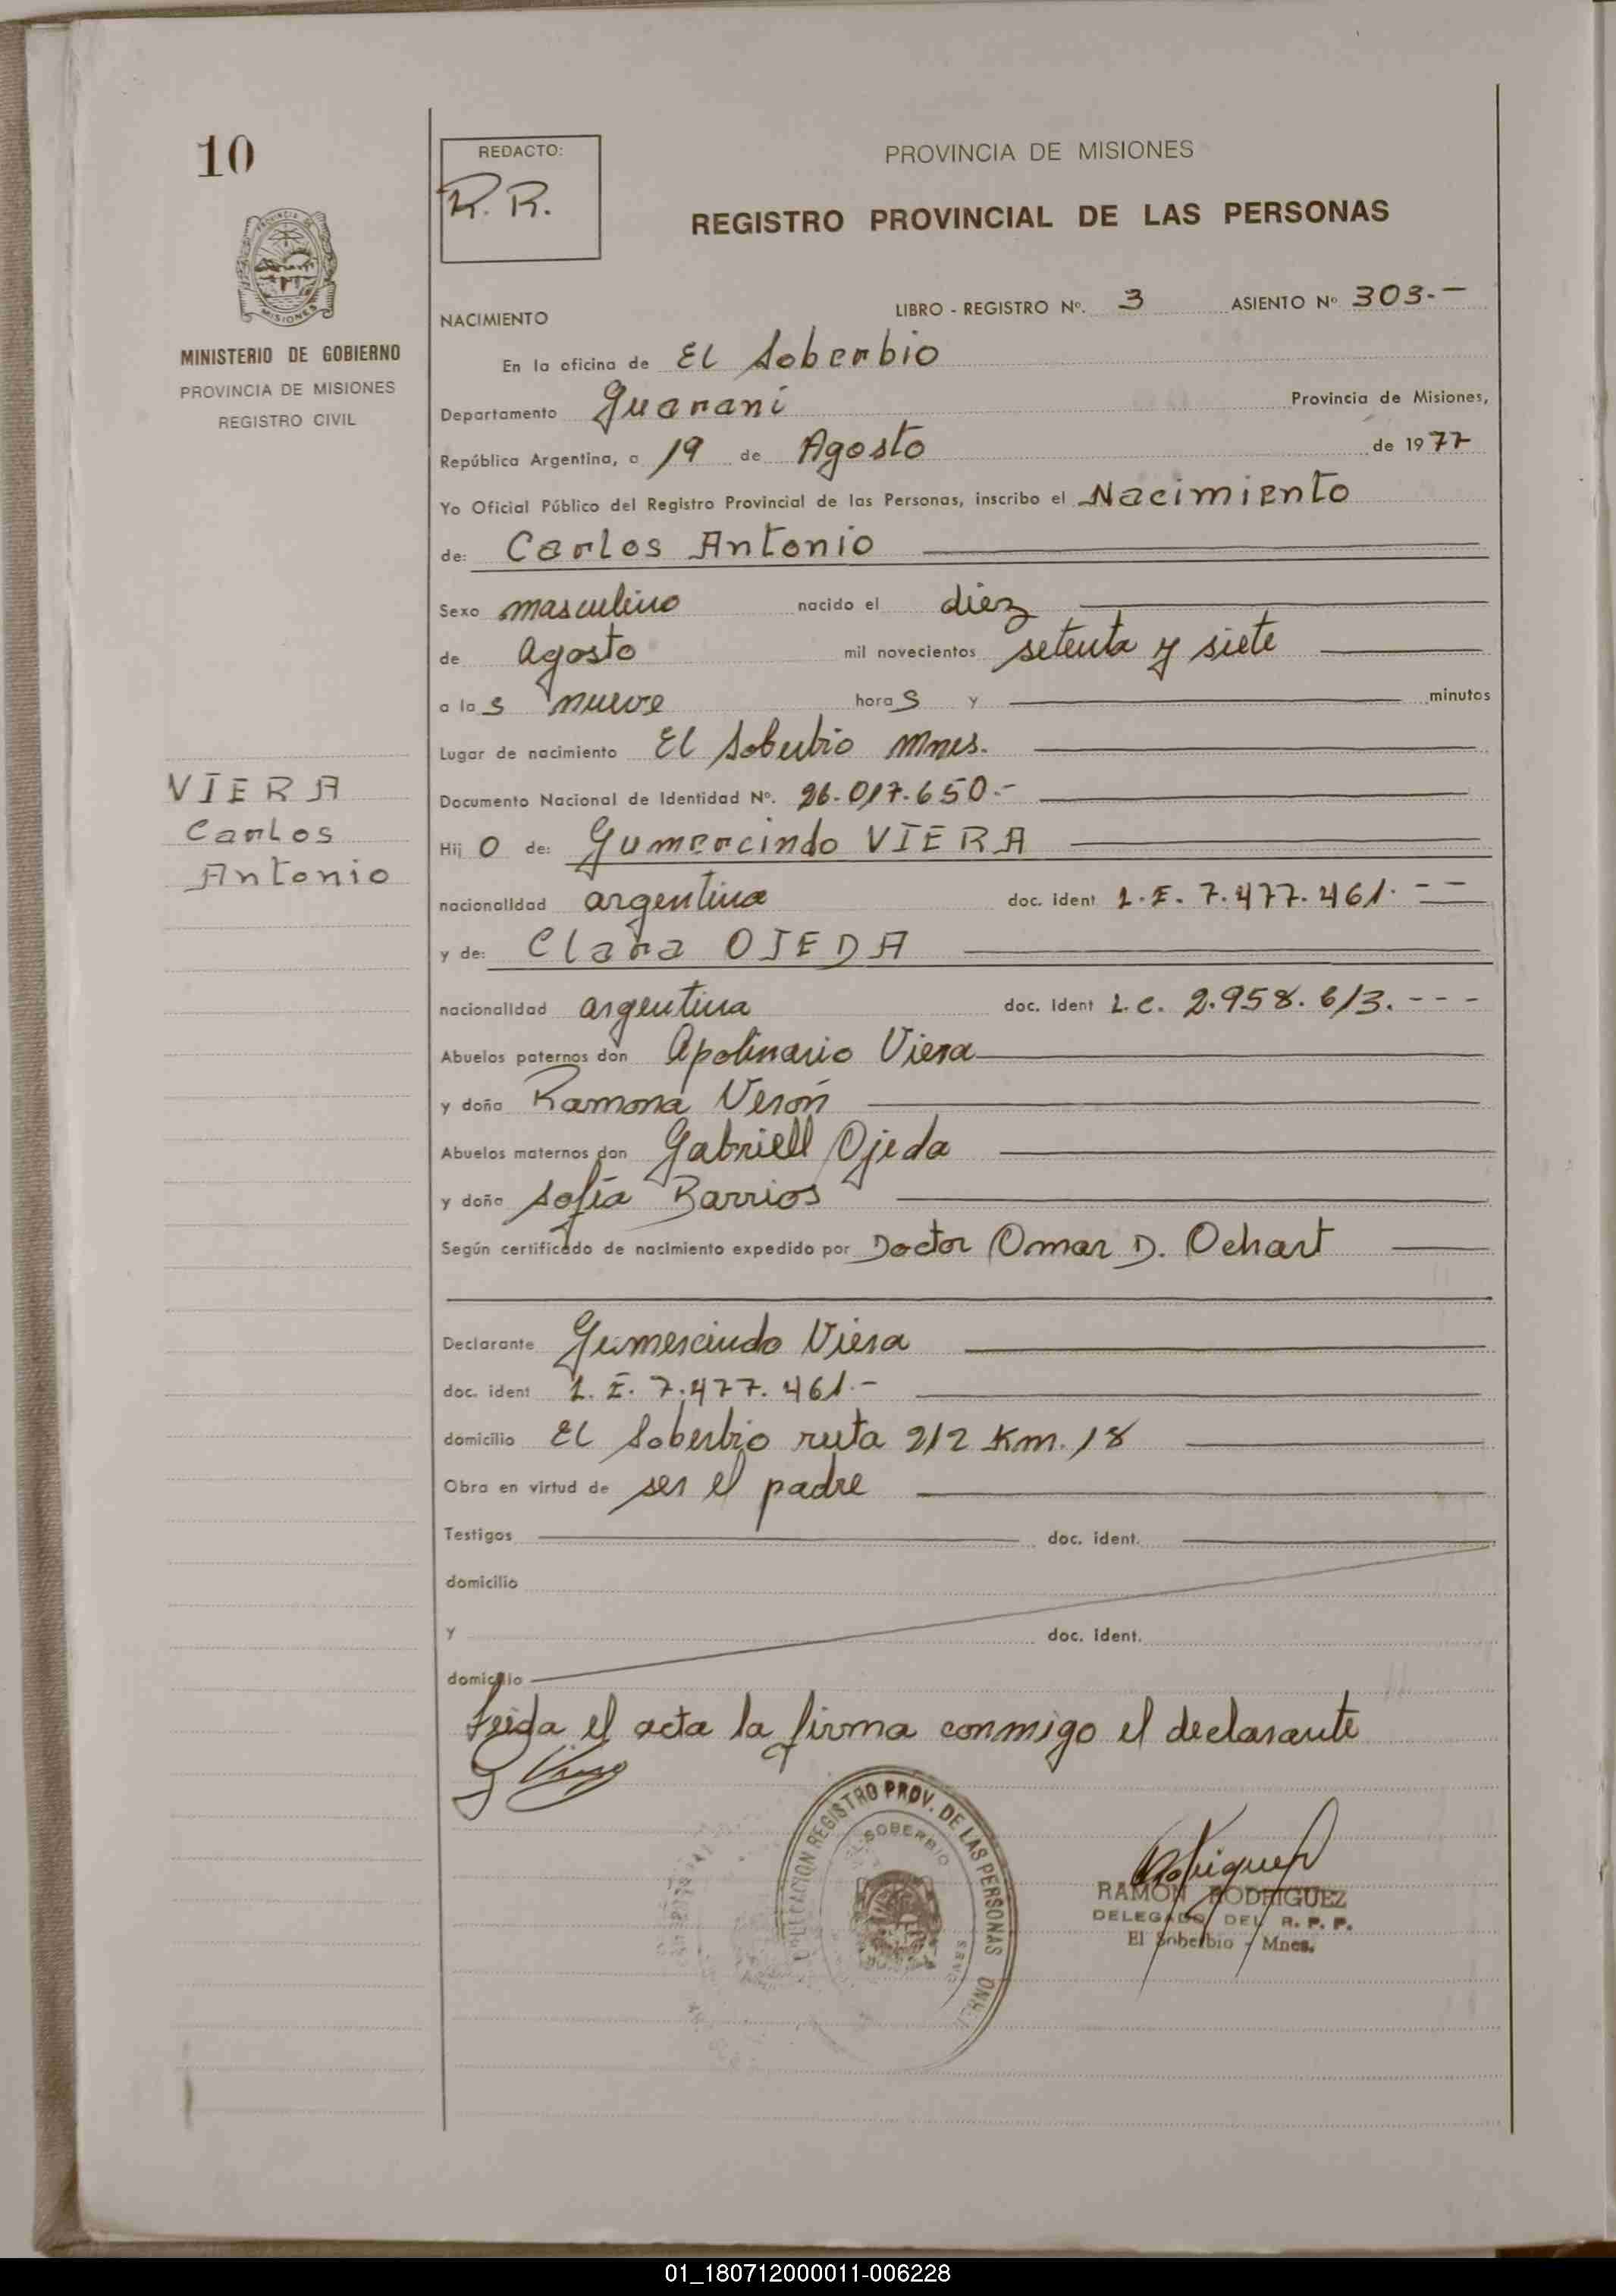 10
REDACTO:
R. R.
PROVINCIA DE MISIONES
REGISTRO PROVINCIAL DE LAS PERSONAS
MINISTERIO DE GOBIERNO
PROVINCIA DE MISIONES
REGISTRO CIVIL
NACIMIENTO
LIBRO - REGISTRO Nº. 3 ASIENTO Nº 303.-
En la oficina de El Soberbio
Departamento Guarani Provincia de Misiones,
República Argentina, a 19 de Agosto de 1977
Yo Oficial Público del Registro Provincial de las Personas, inscribo el Nacimiento
de: Carlos Antonio
Sexo masculino nacido el diez
de Agosto mil novecientos setenta y siete
a las nueve horas y minutos
Lugar de nacimiento El Soberbio Mnes.
VIERA
Carlos
Antonio
Documento Nacional de Identidad Nº. 26.017.650.-
Hijo de: Gumercindo VIERA
nacionalidad argentina doc. ident L.E. 7.477.461.--
y de: Clara OJEDA
nacionalidad argentina doc. Ident L.C. 2.958.613.---
Abuelos paternos don Apolinario Viera
y doña Ramona Verón
Abuelos maternos don Gabriell Ojeda
y doña Sofía Barrios
Según certificado de nacimiento expedido por Doctor Omar D. Ochart
Declarante Gumercindo Viera
doc. ident L.E. 7.477.461.-
domicilio El Soberbio ruta 212 Km. 18
Obra en virtud de ser el padre
Testigos doc. ident.
domicilio
y doc. ident.
domicilio
Leida el acta la firma conmigo el declarante
DELEGACION REGISTRO PROV. DE LAS PERSONAS
EL SOBERBIO
RAMON RODRIGUEZ
DELEGADO DEL R. P. P.
El Soberbio - Mnes.
01_180712000011-006228